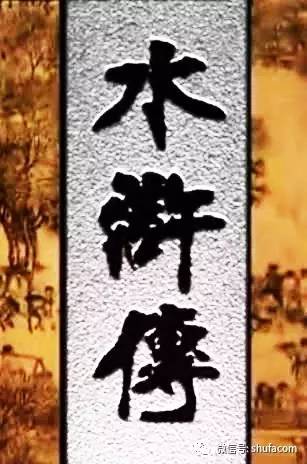 水滸傳
微信号: shufacom